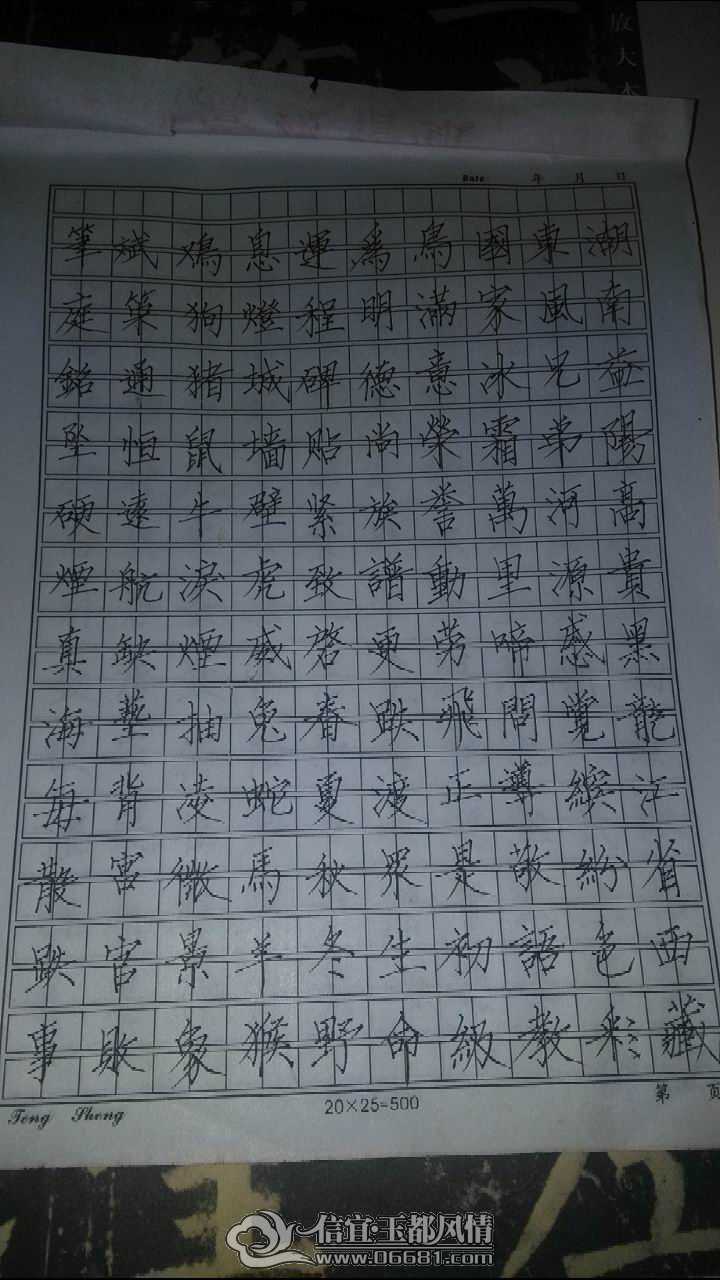 Date 年 月 日
潮南益陽高貴黑龍江省西藏
東風兄弟河源感覺繽紛色彩
國家冰霜萬里啼問尊敬語教
鳥滿意榮譽動飛正是初級
為明德尚族譜更跌渡眾生命
運程碑貼緊致啓春夏秋冬野
息燈城墙壁虎威兔蛇馬羊猴
狗猪鼠牛淚煙抽凌微景象
斌策通恒遠航缺墊背宮官敗
筆庭銘墜硬煙真海每散跌事
Tong Sheng
20×25=500
第 页
放大本
信宜·玉都风情
www.06681.com